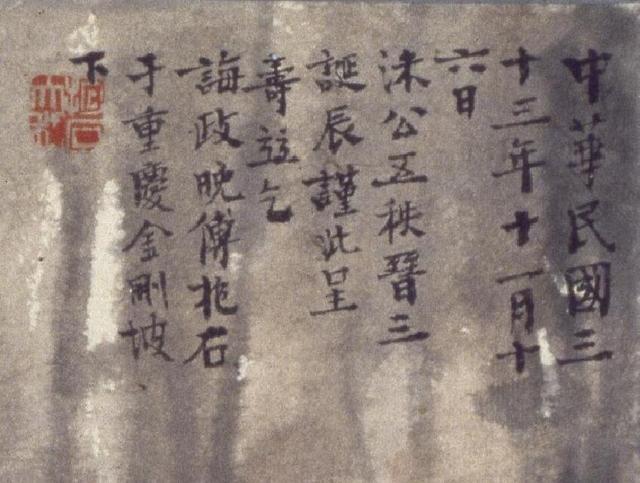 中華民國三
十三年十一月十
六日
沫公五秩晉三
誕辰謹此呈
壽並乞
誨政晚傅抱石
于重慶金剛坡、
下